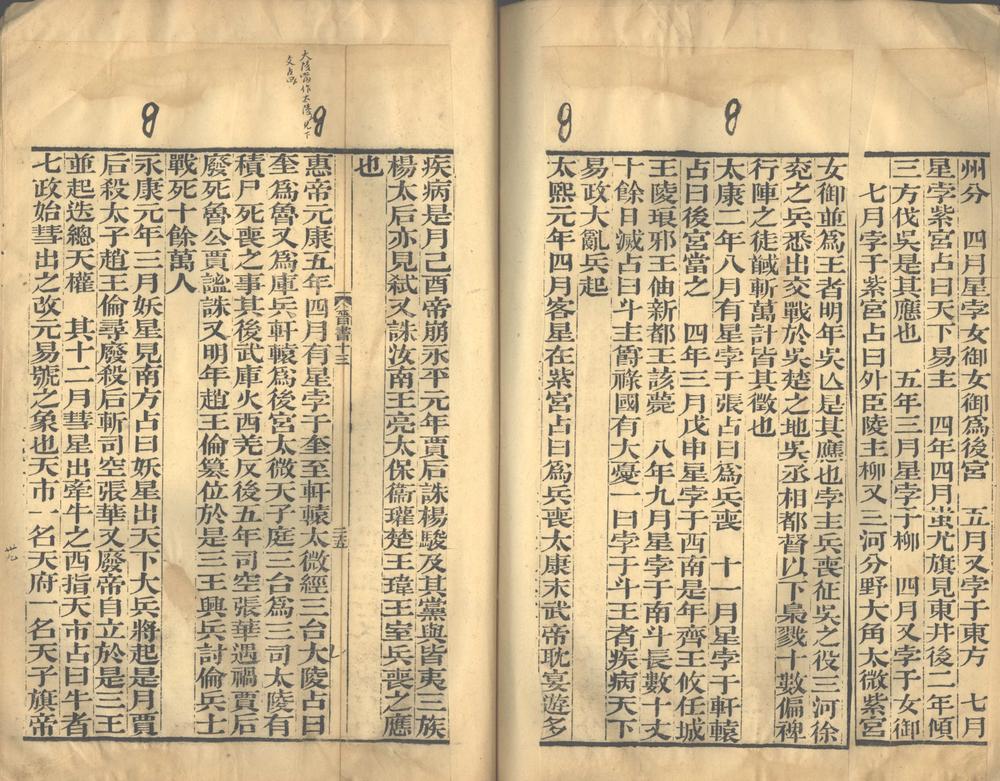 州分　四月星孛女御女御爲後宮　五月又孛于東方　七月
星孛紫宮占曰天下易主　四年四月蚩尤旗見東井後二年傾
三方伐吳是其應也　五年三月星孛于柳　四月又孛于女御
七月孛于紫宮占曰外臣陵主柳又三河分野大角太微紫宮
女御並爲王者明年吳亾是其應也孛主兵喪征吳之役三河徐
兖之兵悉出交戰於吳楚之地吳丞相都督以下梟戮十數偏裨
行陣之徒馘斬萬計皆其徵也
太康二年八月有星孛于張占曰爲兵喪　十一月星孛于軒轅
占曰後宮當之　四年三月戊申星孛于西南是年齊王攸任城
王陵琅邪王伷新都王該薨　八年九月星孛于南斗長數十丈
十餘日滅占曰斗主爵祿國有大憂一曰孛于斗王者疾病天下
易政大亂兵起
太熙元年四月客星在紫宮占曰爲兵喪太康末武帝耽宴遊多
疾病是月己酉帝崩永平元年賈后誅楊駿及其黨與皆夷三族
楊太后亦見弑又誅汝南王亮太保衞瓘楚王瑋王室兵喪之應
也
晉書十三
三五
大陵當作太陵見下
文占
惠帝元康五年四月有星孛于奎至軒轅太微經三台大陵占曰
奎爲魯又爲庫兵軒轅爲後宮太微天子庭三台爲三司太陵有
積尸死喪之事其後武庫火西羌反後五年司空張華遇禍賈后
廢死魯公賈謐誅又明年趙王倫篡位於是三王興兵討倫兵士
戰死十餘萬人
永康元年三月妖星見南方占曰妖星出天下大兵將起是月賈
后殺太子趙王倫尋廢殺后斬司空張華又廢帝自立於是三王
並起迭總天權　其十二月彗星出牽牛之西指天市占曰牛者
七政始彗出之改元易號之象也天市一名天府一名天子旗帝
卅九